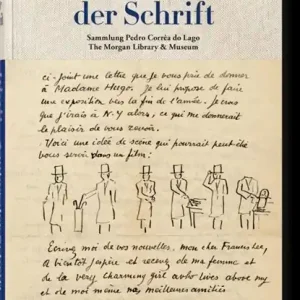 der Schrift
Sammlung Pedro Corrêa do Lago
The Morgan Library & Museum
ci-joint une lettre que je vous prie de donner
à Madame Hugo. Je lui propose de faire
une exposition vers la fin de l'année. Je crois
que j'irais à N.Y alors, ce qui me donnerait
le plaisir de vous revoir.
Voici une idée de scène qui pourrait peut être
vous servir dans un film:
Ecrivez moi de vos nouvelles, mon cher Francis Lee,
A bientôt j'espère et recevez de ma femme et
de la very charming girl who lives above my
et de moi même nos meilleures amitiés